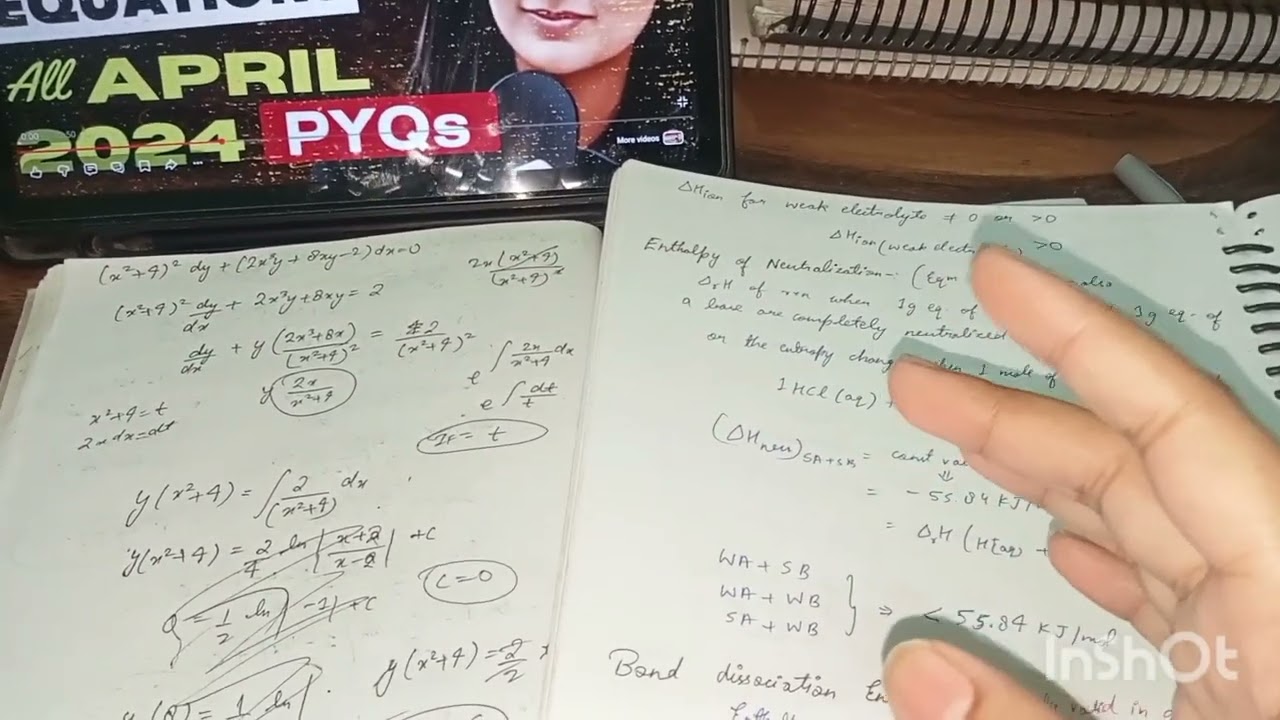 EQUATIONS
All APRIL
2024 PYQs
0:00
More videos
(x²+4)² dy + (2x³y + 8xy - 2) dx = 0
2x(x²+4)/(x²+4)²
(x²+4)² dy/dx + 2x³y + 8xy = 2
dy/dx + y((2x³+8x)/(x²+4)²) = 2/(x²+4)²
y 2x/(x²+4)
e ∫ 2x/(x²+4) dx
e ∫ dt/t
x²+4 = t
2x dx = dt
IF = t
y(x²+4) = ∫ 2/(x²+4) dx
y(x²+4) = 2/4 ln |(x+2)/(x-2)| + C
C = 0
0 = 1/2 ln |-1| + C
y(x²+4) = 2/2
y(0) = 1/2 ln
ΔHion for weak electrolyte ≠ 0 or >0
ΔHion (weak >0
Enthalpy of Neutralization-: (Eqm also
ΔrH of rxn when 1g eq. of 1g eq. of
a base are completely neutralized
or the entropy when 1 mole of
1 HCl (aq) +
(ΔHneu)SA+SB = const
⇓
= -55.84 KJ/
= ΔrH (H(aq) +
WA + SB
WA + WB
SA + WB
⇒ < 55.84 KJ/mol
Bond dissociation
valid in
InShOt